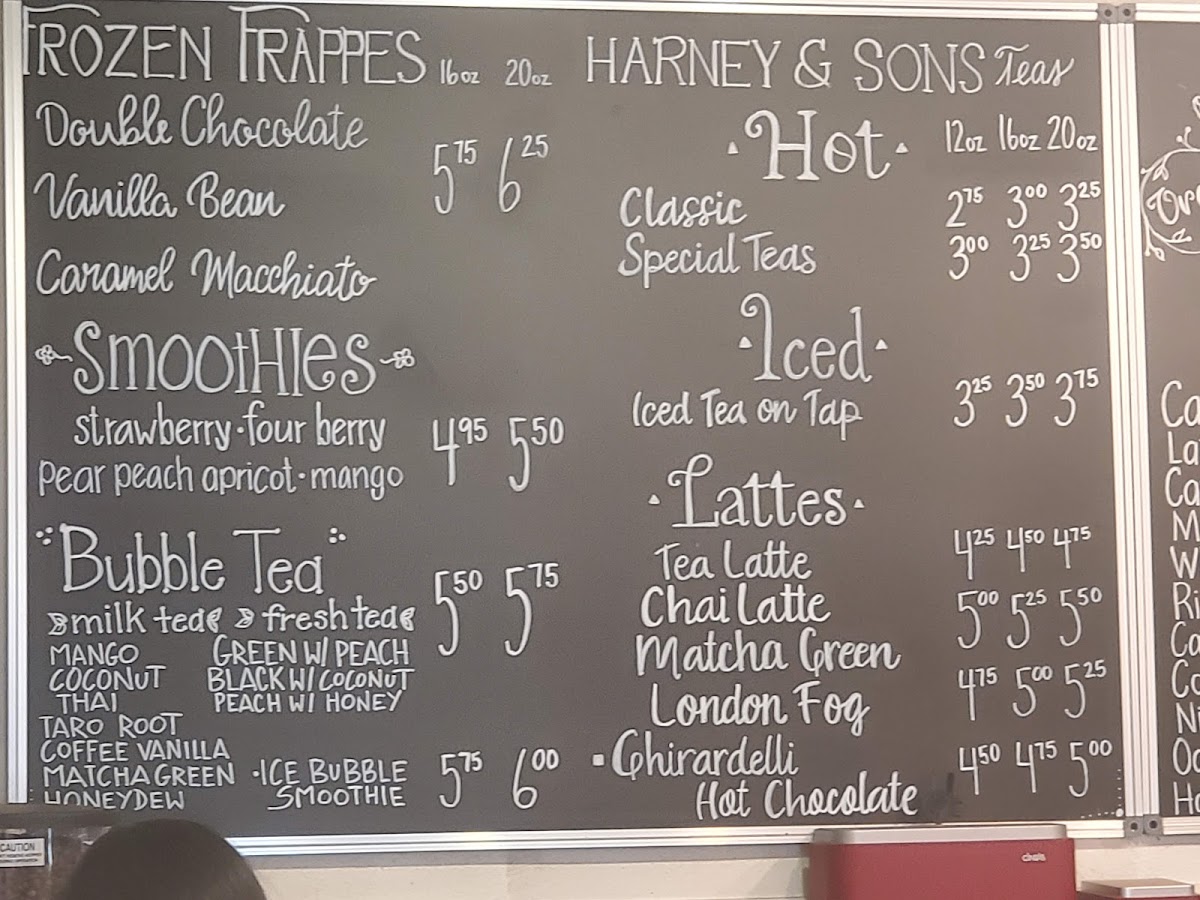 FROZEN FRAPPES 16oz 20oz
Double Chocolate
5.75 6.25
Vanilla Bean
Caramel Macchiato
Smoothies
strawberry · four berry 4.95 5.50
pear peach apricot · mango
Bubble Tea
5.50 5.75
milk tea fresh tea
MANGO GREEN W/ PEACH
COCONUT BLACK W/ COCONUT
THAI PEACH W/ HONEY
TARO ROOT
COFFEE VANILLA
MATCHA GREEN · ICE BUBBLE 5.75 6.00
HONEYDEW SMOOTHIE
HARNEY & SONS Teas
Hot 12oz 16oz 20oz
Classic 2.75 3.00 3.25
Special Teas 3.00 3.25 3.50
Iced
Iced Tea on Tap 3.25 3.50 3.75
Lattes
Tea Latte 4.25 4.50 4.75
Chai Latte 5.00 5.25 5.50
Matcha Green
London Fog 4.75 5.00 5.25
Ghirardelli 4.50 4.75 5.00
Hot Chocolate
CAUTION